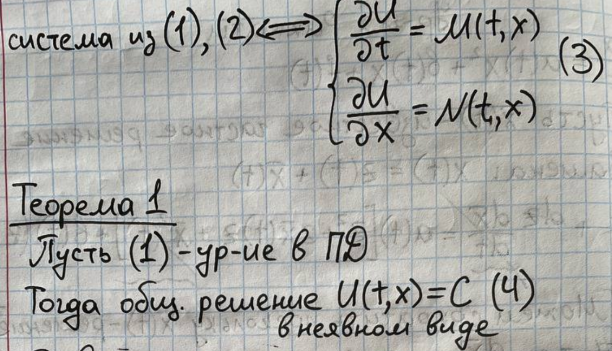 система из (1), (2) <=> { ∂U/∂t = M(t,x)
∂U/∂x = N(t,x) (3)
Теорема 1
Пусть (1) - ур-ие в ПД
Тогда общ. решение U(t,x)=C (4)
в неявном виде